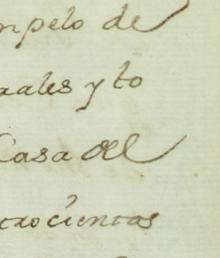 mpelo de
rales y to
Casa del
trocientas